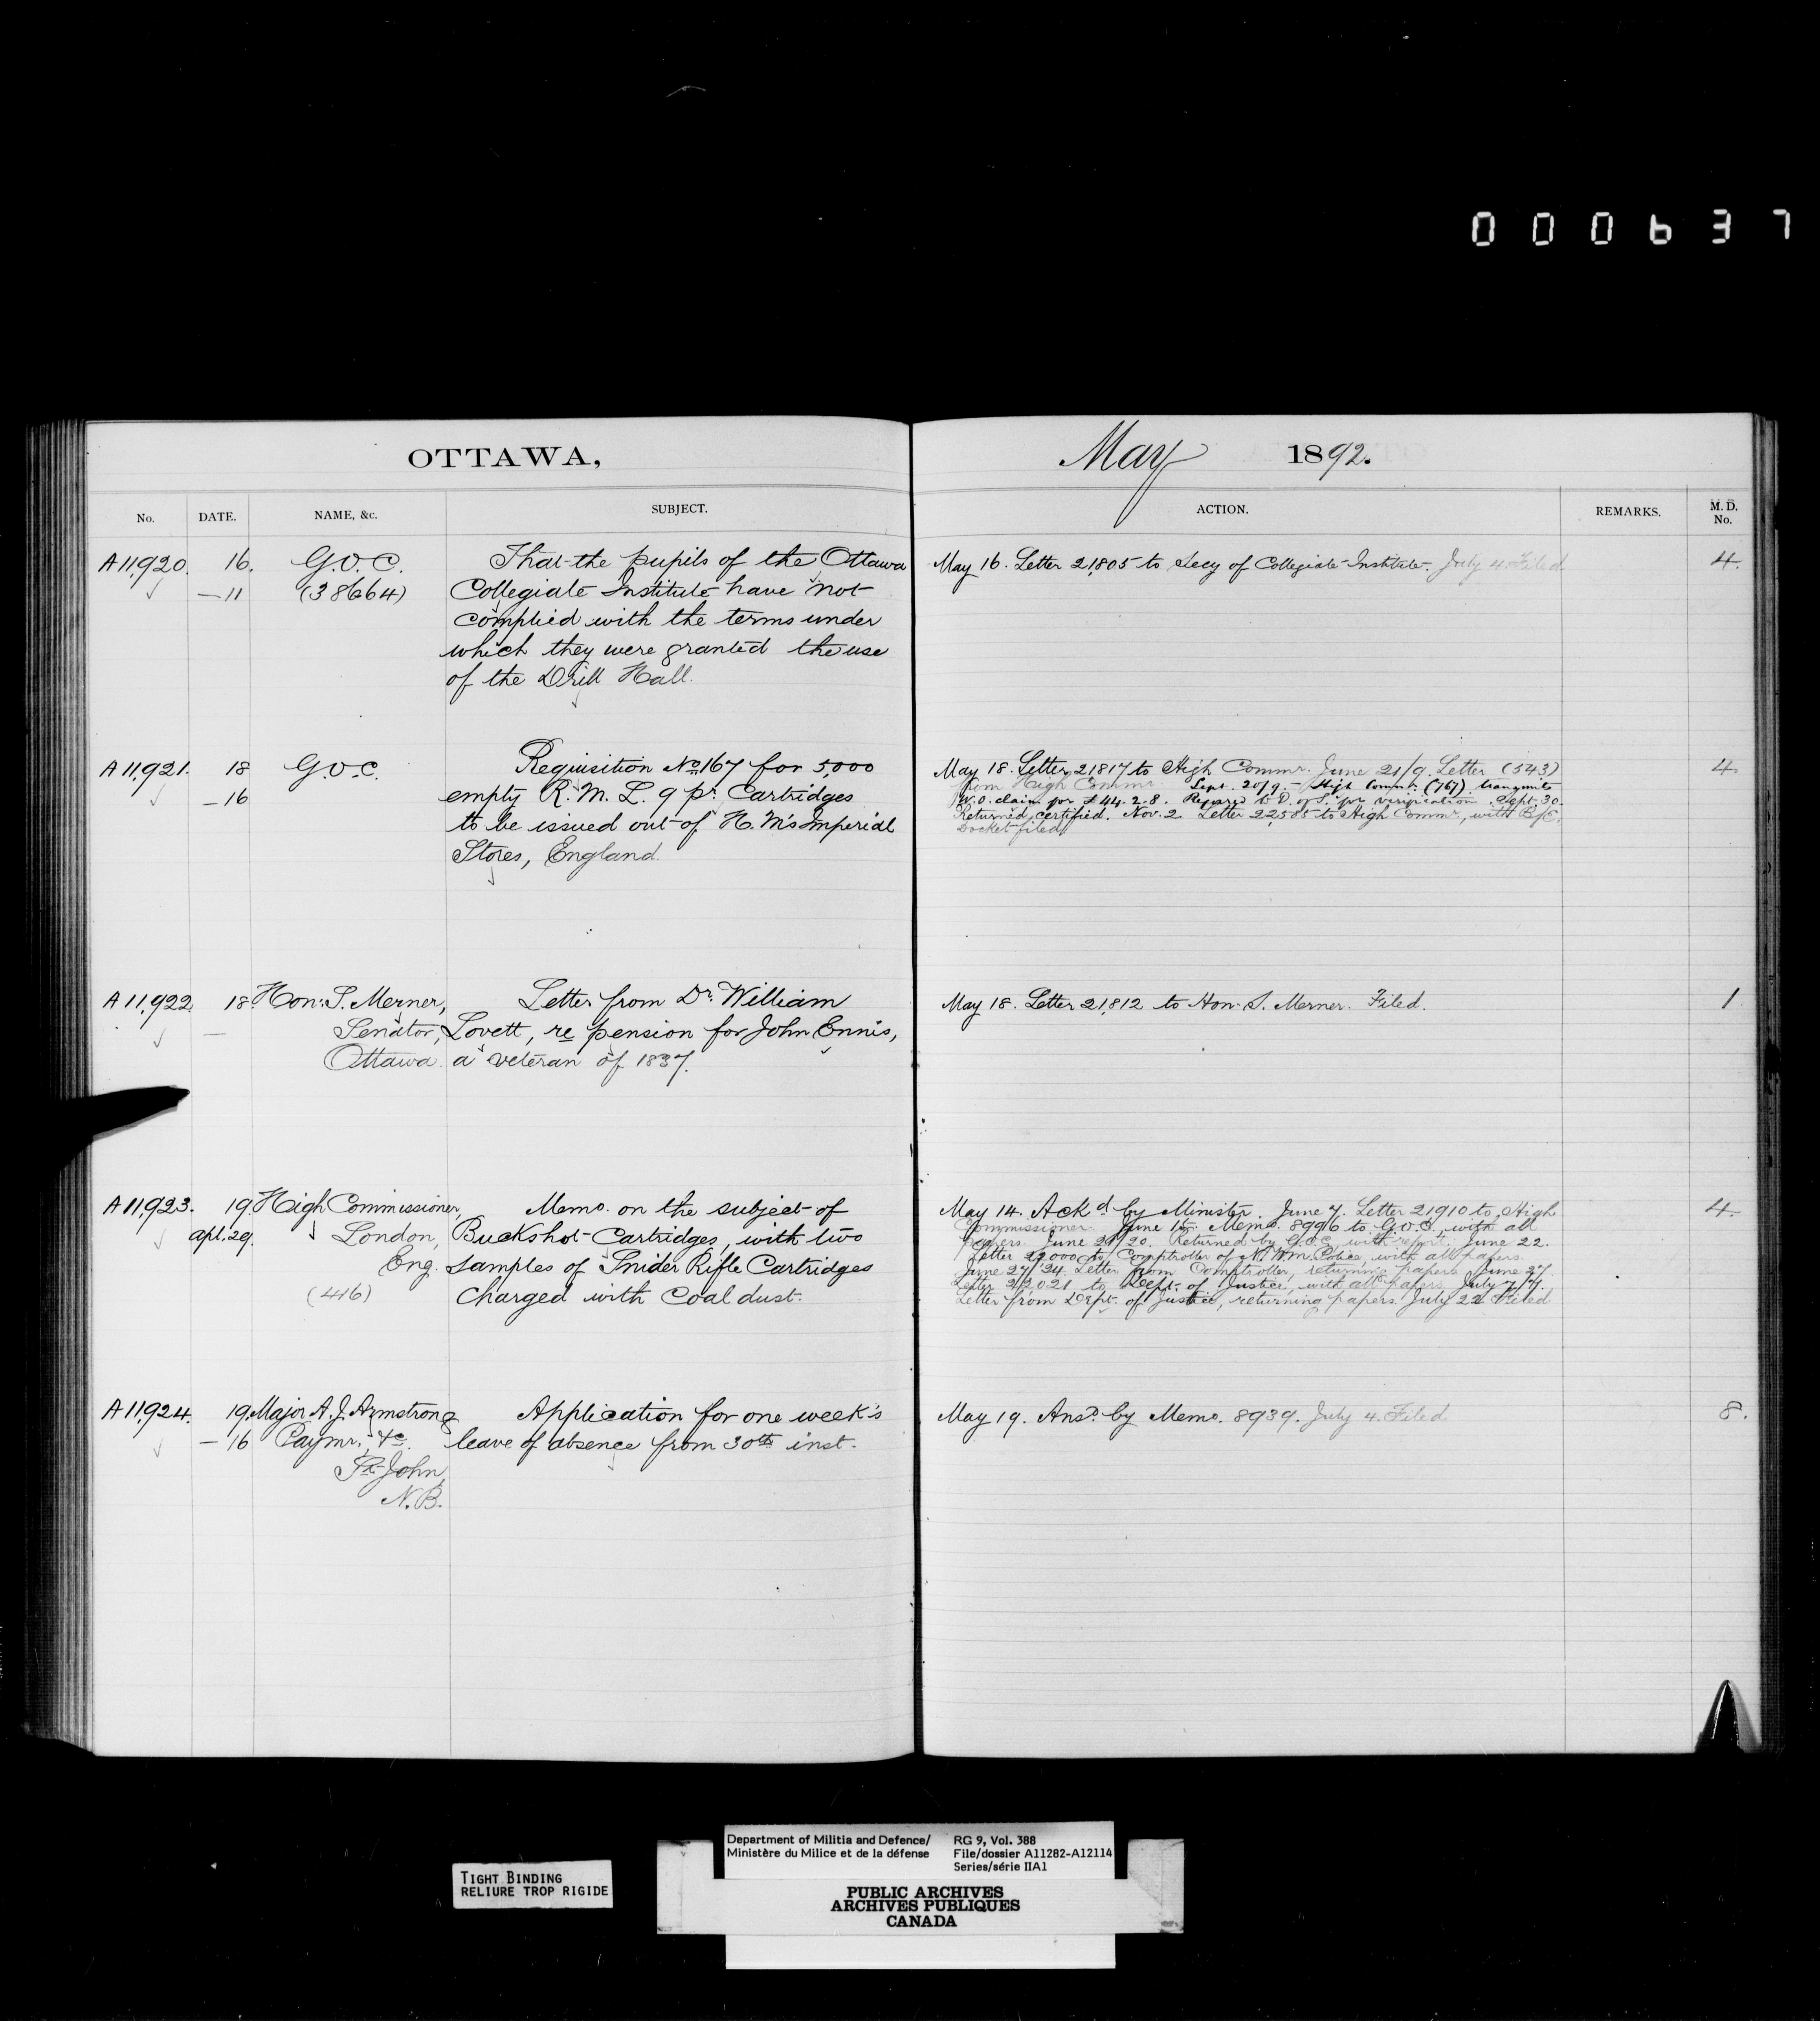 000637
OTTAWA,
May 1892.
No.
DATE.
NAME, &c.
SUBJECT.
ACTION.
REMARKS.
M. D.
No.
A 11,920. 16. G.O.C. That the pupils of the Ottawa
— 11 (38664) Collegiate Institute have not
complied with the terms under
which they were granted the use
of the Drill Hall.
May 16. Letter 21,805 to Secy of Collegiate Institute. July 4. Filed
4.
A 11,921. 18 G.O.C. Requisition No 167 for 5,000
— 16 empty R. M. L. 9 pr. Cartridges
to be issued out of H. M's Imperial
Stores, England.
May 18. Letter 21,817 to High Commr. June 21/9. Letter (543)
from High Commr Sept. 20/9. – High Commr. (767) transmits
W.O. claim for £44.2.8. to D. of S. for verification. Sept. 30.
Returned, certified. Nov. 2 Letter 22,585 to High Commr, with B/E.
Docket filed
4.
A 11,922 18 Hon: S. Merner, Letter from Dr. William
— Senator, Lovett, re pension for John Ennis,
Ottawa. a veteran of 1837.
May 18. Letter 21,812 to Hon. S. Merner. Filed.
1
A 11,923. 19. High Commissioner, Memo. on the subject of
apl. 29. London, Buckshot Cartridges, with two
Eng. samples of Snider Rifle Cartridges
(416) charged with Coal dust.
May 14. Ackd by Minister. June 7. Letter 21910 to High
Commissioner. June 15. Memo. 8996 to G.O.C. with all
papers. June 20. Returned by G.O.C. with report. June 22.
Letter 22000 to Comptroller of N.W.M. Police, with all papers.
June 27/24. Letter from Comptroller, returning papers. June 27.
Letter 22,021 to Dept. of Justice, with all papers. July 7/7.
Letter from Dept. of Justice, returning papers. July 22 Filed
4.
A 11,924. 19. Major A. J. Armstrong Application for one week's
— 16 Paymr. &c. leave of absence from 30th inst.
St. John,
N. B.
May 19. Ansd. by Memo. 8939. July 4. Filed
8.
TIGHT BINDING
RELIURE TROP RIGIDE
Department of Militia and Defence/
Ministère du Milice et de la défense
RG 9, Vol. 388
File/dossier A11282-A12114
Series/série IIA1
PUBLIC ARCHIVES
ARCHIVES PUBLIQUES
CANADA